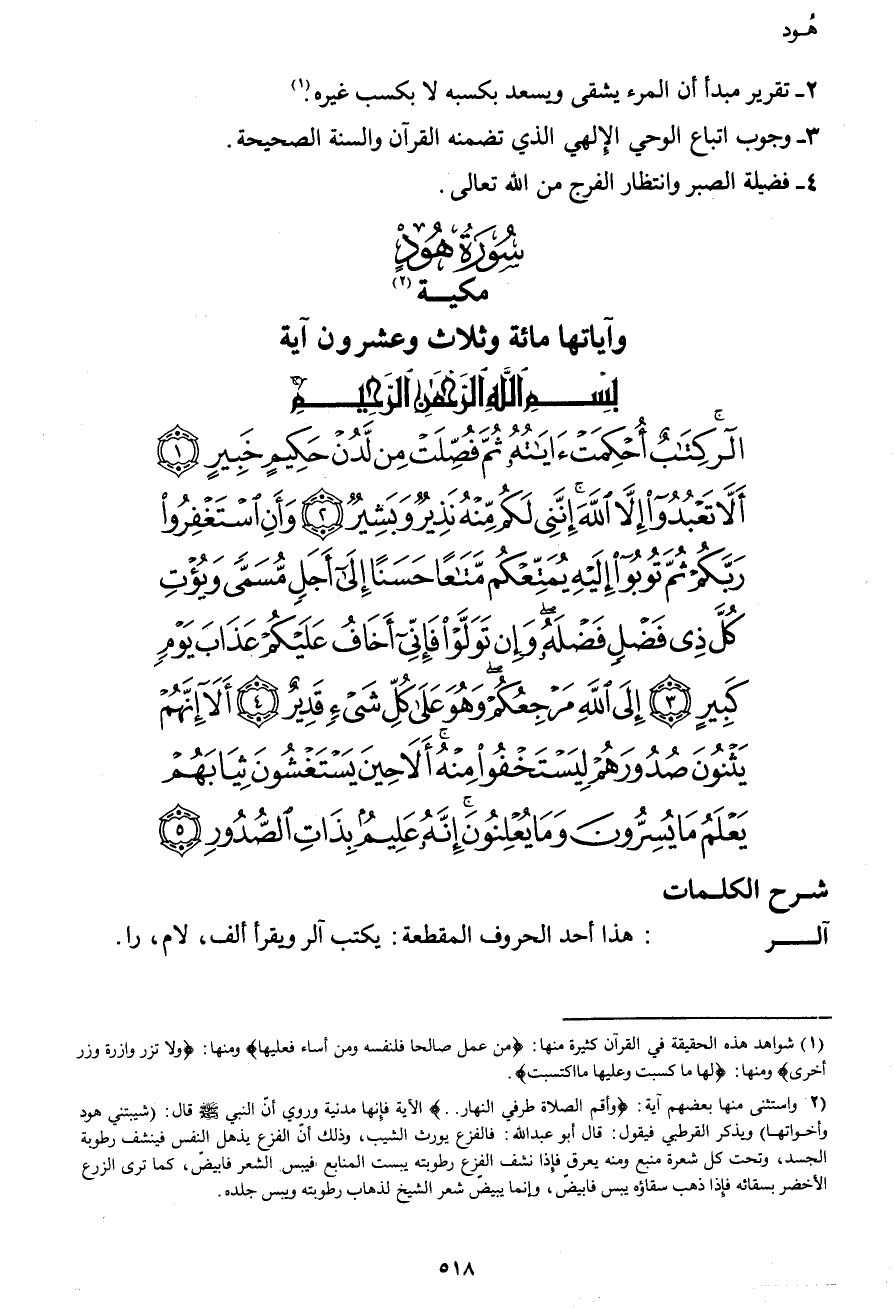 هُود
٢ـ تقرير مبدأ أن المرء يشقى ويسعد بكسبه لا بكسب غيره.(١)
٣ـ وجوب اتباع الوحي الإلهي الذي تضمنه القرآن والسنة الصحيحة.
٤ـ فضيلة الصبر وانتظار الفرج من الله تعالى.
سُورَةُ هُودٍ
مكيـة (٢)
وآياتها مائة وثلاث وعشرون آية
بِسْمِ ٱللَّهِ ٱلرَّحْمَٰنِ ٱلرَّحِيمِ
الٓرۚ كِتَٰبٌ أُحْكِمَتْ ءَايَٰتُهُۥ ثُمَّ فُصِّلَتْ مِن لَّدُنْ حَكِيمٍ خَبِيرٍ ١
أَلَّا تَعْبُدُوٓا۟ إِلَّا ٱللَّهَۚ إِنَّنِى لَكُم مِّنْهُ نَذِيرٌ وَبَشِيرٌ ٢ وَأَنِ ٱسْتَغْفِرُوا۟
رَبَّكُمْ ثُمَّ تُوبُوٓا۟ إِلَيْهِ يُمَتِّعْكُم مَّتَٰعًا حَسَنًا إِلَىٰٓ أَجَلٍ مُّسَمًّى وَيُؤْتِ
كُلَّ ذِى فَضْلٍ فَضْلَهُۥۖ وَإِن تَوَلَّوْا۟ فَإِنِّىٓ أَخَافُ عَلَيْكُمْ عَذَابَ يَوْمٍ
كَبِيرٍ ٣ إِلَى ٱللَّهِ مَرْجِعُكُمْۖ وَهُوَ عَلَىٰ كُلِّ شَىْءٍ قَدِيرٌ ٤ أَلَآ إِنَّهُمْ
يَثْنُونَ صُدُورَهُمْ لِيَسْتَخْفُوا۟ مِنْهُۚ أَلَا حِينَ يَسْتَغْشُونَ ثِيَابَهُمْ
يَعْلَمُ مَا يُسِرُّونَ وَمَا يُعْلِنُونَۚ إِنَّهُۥ عَلِيمٌۢ بِذَاتِ ٱلصُّدُورِ ٥
شرح الكلمات
آلـر : هذا أحد الحروف المقطعة: يكتب آلر ويقرأ ألف، لام، را.
(١) شواهد هذه الحقيقة في القرآن كثيرة منها: ﴿من عمل صالحا فلنفسه ومن أساء فعليها﴾ ومنها: ﴿ولا تزر وازرة وزر
أخرى﴾ ومنها: ﴿لها ما كسبت وعليها مااكتسبت﴾.
(٢ واستثنى منها بعضهم آية: ﴿وأقم الصلاة طرفي النهار..﴾ الآية فإنها مدنية وروي أنّ النبي ﷺ قال: (شيبتني هود
وأخواتها) ويذكر القرطبي فيقول: قال أبو عبدالله: فالفزع يورث الشيب، وذلك أنّ الفزع يذهل النفس فينشف رطوبة
الجسد، وتحت كل شعرة منبع ومنه يعرق فإذا نشف الفزع رطوبته يبست المنابع فيبس الشعر فابيضّ، كما ترى الزرع
الأخضر بسقائه فإذا ذهب سقاؤه يبس فابيضّ، وإنما يبيضّ شعر الشيخ لذهاب رطوبته ويبس جلده.
٥١٨